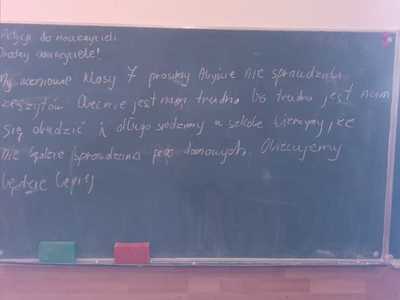 Petycja do nauczycieli
Drodzy nauczyciele!
My uczniowie klasy 7 prosimy Abyście nie sprawdzali
zeszytów Obecnie jest nam trudno bo trudno jest nam
się obudzić i długo siedzimy w szkole Wierzymy, że
nie będzie sprawdzania prac domowych. Obiecujemy
będzie lepiej